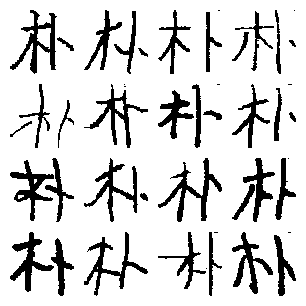 朴朴朴朴
朴朴朴朴
朴朴朴朴
朴朴朴朴